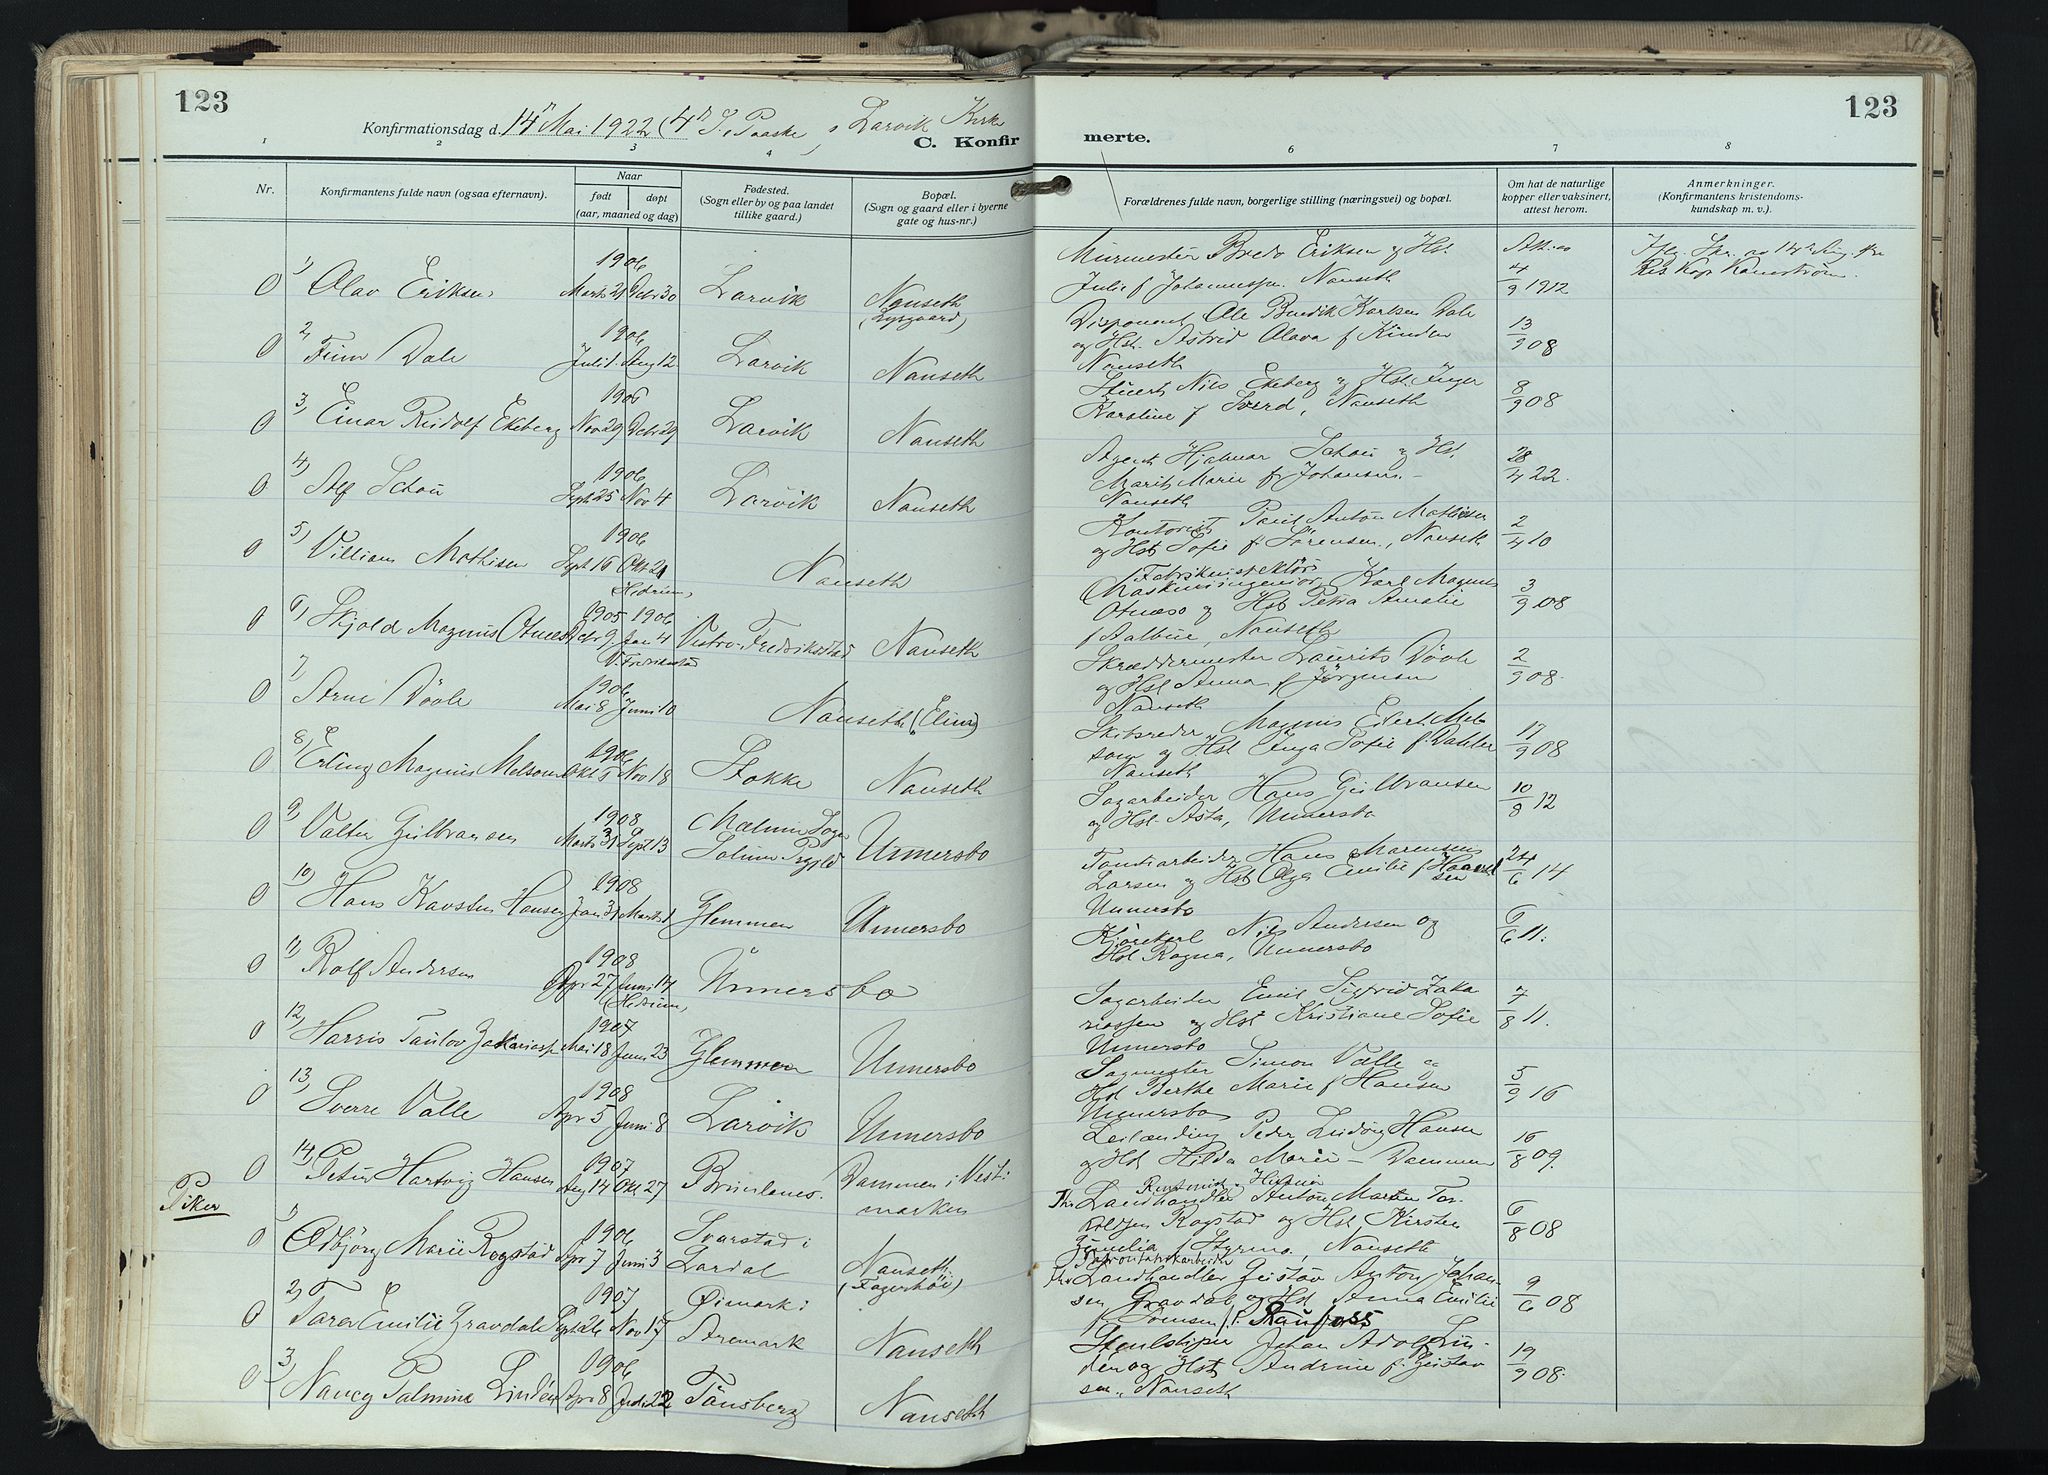 123
Konfirmationsdag d. 14n Mai 1922 (4n S. Paaske, Larvik Kirke
C. Konfirmerte.
123
1 2 3 4 6 7 8
Nr.
Konfirmantens fulde navn (ogsaa efternavn).
Naar
født
døpt
(aar, maaned og dag)
Fødested.
(Sogn eller by og paa landet
tillike gaard.)
Bopæl.
(Sogn og gaard eller i byerne
gate og hus-nr.)
Forældrenes fulde navn, borgerlige stilling (næringsvei) og bopæl.
Om hat de naturlige
kopper eller vaksinert,
attest herom.
Anmerkninger.
(Konfirmantens kristendoms-
kundskap m. v.).
0 1) Olav Eriksen 1906 Marts 21 Decbr 30 Larvik Nanseth
Murmester Bredo Eriksen og Hst.
Julie f Johannesen. Nanseth 4/9 1912
0 2) Finn Dale 1906 Juli 1. Aug 12 Larvik Nanseth
Disponent Ole Bendik Karlsen Dale
og Hst. Astrid Olava f
Nanseth 13/9 08
0 3) Einar Rudolf Ekeberg Nov 29 Decbr 29 Larvik Nanseth
Nils Ekeberg og Hst. Inger
Karoline f Sverd, Nanseth 8/9 08
0 4) Alf Schou 1906 Sept 25 Nov 4 Larvik Nanseth
Agent Hjalmar Schou og Hst.
Marit Marie f Johansen
Nanseth 28/4 22.
0 5) Villiam Mathisen 1906 Sept 16 Okt 21 Nanseth
Kontorist Paul Anton Mathisen
og Hst Sofie f. Sørensen, Nanseth 2/4 10
0 6) Skjold Magnus 1905 1906 Decbr 9 Jan 4 Vestre-Fredrikstad Nanseth
Fabrikinspektør
Maskiningeniør, Karl Magnus
og Hst Petra Amalie
f Aalbue, Nanseth 3/9 08
0 7) Arne Døvle 1906 Mai 8 Juni 10 Nanseth
Skræddermester Laurits Døvle
og Hst Anna f Jørgensen
Nanseth 2/9 08.
0 8) Erling Magnus Melsom 1906 Nov 18 Stokke Nanseth
Skibsreder Magnus Evert Mel-
som og Hst Inga Sofie f. Dahler
Nanseth 17/9 08
0 9) Valter Gulbransen 1908 Marts 31 Sept 13 Mælum Sogn
Solum Unnersbo
Sagarbeider Hans Gulbransen
og Hst. Asta, Unnersbo 10/8 12
0 10) Hans Karsten Hansen 1908 Jan 31 Marts 1 Glemmen Unnersbo
Tomtearbeider Hans
Larsen og Hst Olga Emilie f
Unnersbo 24/6 14
0 11) Rolf Andersen 1908 Apr 27 Juni 14 Unnersbo
Kjørekarl Nils Andersen og
Hst Ragna, Unnersbo 6/6 11.
0 12) Harris Taulov Zakariassen 1907 Mai 18 Juni 23 Glemmen Unnersbo
Sagarbeider Emil Sigfrid Zaka
riassen og Hst Kristiane Sofie
Unnersbo 7/8 11.
0 13) Sverre Valle 1908 Apr 5 Juni 8 Larvik Unnersbo
Sagmester Simon Valle og
Hst Berthe Marie f Hansen
Unnersbo 5/9 16
0 14) Peter Hartvig Hansen 1907 Aug 14 Okt 27 Brunlanes. Dammen i Vest-
marken
Leilænding Peder Ludvig Hansen
og Hst Hilda Marie - Dammen 16/8 09.
Piker
0 1) Odbjørg Marie Rogstad 1906 Apr 7 Juni 3 Svarstad i
Lardal Nanseth
Landhandler Anton Martin Tor-
Rogstad og Hst, Kirsten
f Styrmo, Nanseth 6/8 08
0 2) Emilie Gravdal 1907 Sept 26 Nov 17 Øimark i
Aremark Nanseth
Landhandler Gustav Anton Johan-
sen Gravdal og Hst Anna Emilie
9/6 08
0 3) Nancy Palmine Lindén 1906 Apr 8 Juli 22 Tønsberg Nanseth
Johan Adolf Lin-
dén og Hst Andrine f. Gustav
sen, Nanseth 19/9 08.